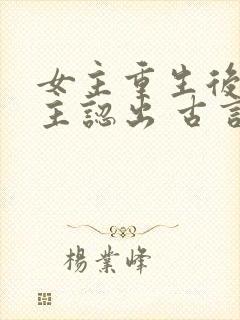 女主重生後
主認出 古言
楊業峰